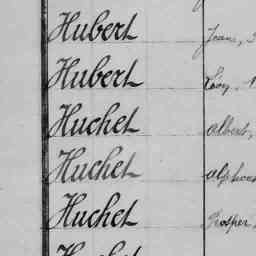 Hubert Jean,
Hubert Léon,
Huchet Albert,
Huchet Alphons
Huchet Prosper,